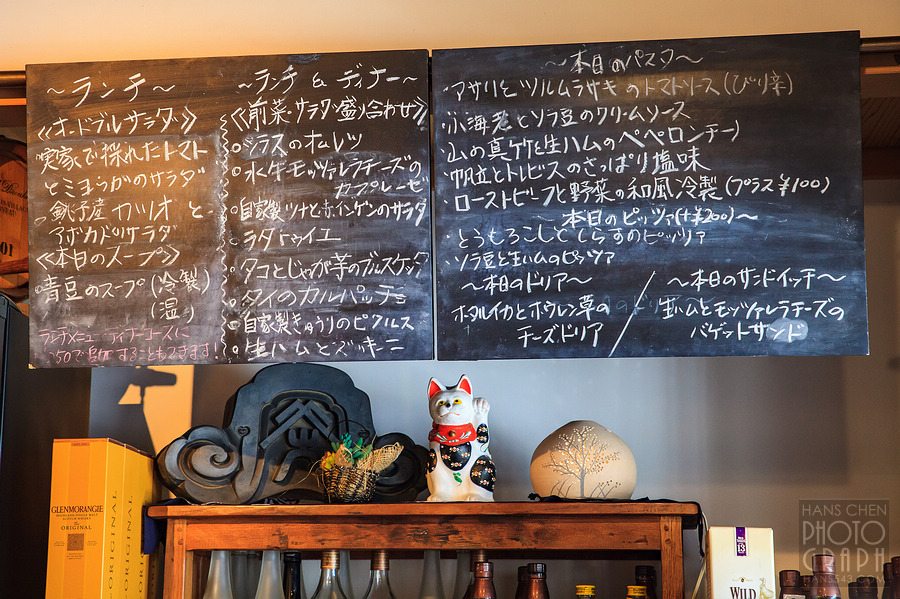 ～ランチ～
《オードブルサラダ》
・実家で採れたトマト
とミョウガのサラダ
・銚子産カツオと
アボカドのサラダ
《本日のスープ》
青豆のスープ(冷製)
(温)
～ランチ & ディナー～
《前菜・サラダ・盛り合わせ》
・シラスのオムレツ
・水牛モッツァレラチーズの
カプレーゼ
・自家製ツナと赤インゲンのサラダ
・ラタトゥイエ
・タコとじゃが芋のブルスケッタ
・タイのカルパッチョ
・自家製きゅうりのピクルス
・生ハムとズッキーニ
～本日のパスタ～
・アサリとツルムラサキのトマトソース(ぴり辛)
・小海老とソラ豆のクリームソース
・山の真竹と生ハムのペペロンチーノ
・帆立とトレビスのさっぱり塩味
・ローストビーフと野菜の和風冷製(プラス¥100)
～本日のピッツァ(+¥200)～
・とうもろこしとしらすのピッツァ
・ソラ豆と生ハムのピッツァ
～本日のドリア～
ホタルイカとホウレン草の
チーズドリア
～本日のサンドイッチ～
生ハムとモッツァレラチーズの
バゲットサンド
GLENMORANGIE
ORIGINAL
ORIGINAL
WILD
HANS CHEN
PHOTO
GRAPH
HANS543.COM